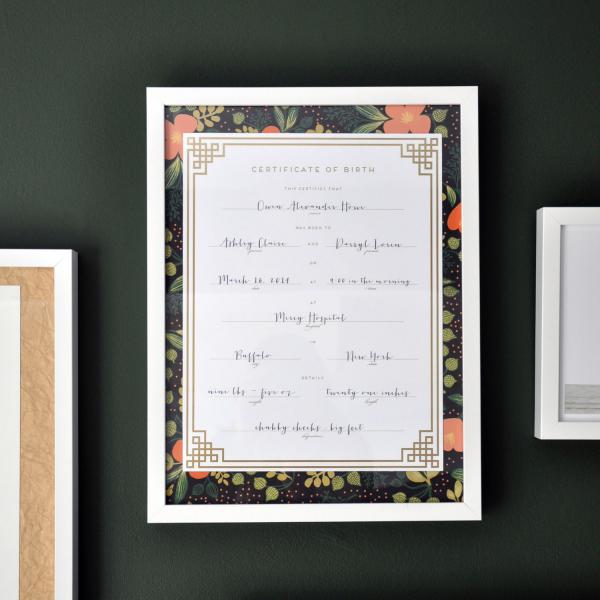 CERTIFICATE OF BIRTH
THIS CERTIFIES THAT
Owen Alexander Howe
name
WAS BORN TO
Ashley Claire AND Darryl Loren
parent parent
ON
March 26, 2021 AT 9:00 in the morning
date time
AT
Mercy Hospital
hospital
IN
Buffalo New York
city state
DETAILS
nine lbs - five oz twenty one inches
weight length
chubby cheeks, big feet